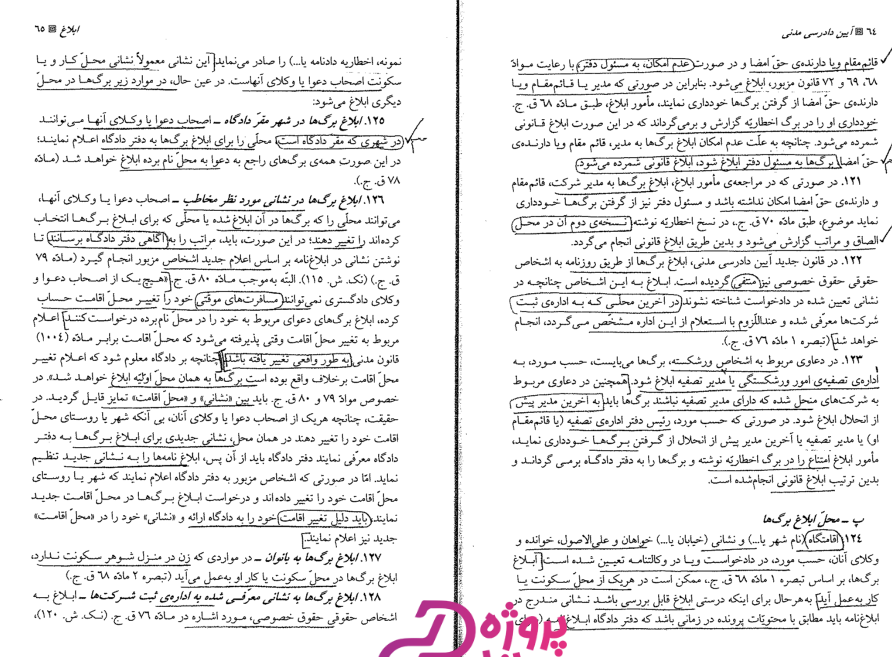 ٦٤ آیین دادرسی مدنی
قائم‌مقام ویا دارنده‌ی حقّ امضا و در صورت عدم امکان، به مسئول دفتر) با رعایت مـوادّ
۶۸، ۶۹ و ۷۲ قانون مزبور، ابلاغ می‌شود. بنابراین در صورتی که مدیر یـا قـائم‌مقـام ویـا
دارنده‌ی حقّ امضا از گرفتن برگ‌ها خودداری نمایند، مأمور ابلاغ، طبـق مـادّه ۶۸ ق. ج.
خودداری او را در برگ اخطاریّه گزارش و برمی‌گرداند که در این صورت ابلاغ قـانونی
شمرده می‌شود. چنانچه به علّت عدم امکان ابلاغ برگ‌ها به مدیر، قائم مقام ویا دارنـده‌ی
حقّ امضا، برگ‌ها به مسئول دفتر ابلاغ شود، ابلاغ قانونی شمرده می‌شود.
۱۲۱. در صورتی که در مراجعه‌ی مأمور ابلاغ، ابلاغ برگ‌ها به مدیر شرکت، قائم‌مقام
و دارنده‌ی حقّ امضا امکان نداشته باشد و مسئول دفتر نیز از گرفتن برگ‌هـا خـودداری
نماید موضوع، طبق مادّه ۷۰ ق. ج، در نسخ اخطاریّه نوشته، نسخه‌ی دوم آن در محـل
الصاق و مراتب گزارش می‌شود و بدین طریق ابلاغ قانونی انجام می‌گردد.
۱۲۲. در قانون جدید آیین دادرسی مدنی، ابلاغ برگ‌ها از طریق روزنامه به اشخاص
حقوقی حقوق خصوصی نیز منتفی گردیده است. ابـلاغ بـه ایـن اشـخاص چنانچـه در
نشانی تعیین شده در دادخواست شناخته نشوند در آخرین محلّـی کـه بـه اداره‌ی ثبـت
شرکت‌ها معرّفی شده و عنداللّزوم با استعلام از ایـن اداره مـشخّص مـی‌گـردد، انجـام
خواهد شد (تبصره ۱ مادّه ۷۶ ق. ج.).
۱۲۳. در دعاوی مربوط به اشخاص ورشکسته، برگ‌ها می‌بایست، حسب مـورد، بـه
اداره‌ی تصفیه‌ی امور ورشکستگی یا مدیر تصفیه ابلاغ شود. همچنین در دعاوی مربـوط
به شرکت‌های منحل شده که دارای مدیر تصفیه نباشند برگ‌ها باید به آخرین مدیر پیش
از انحلال ابلاغ شود. در صورتی که حسب مورد، رئیس دفتر اداره‌ی تصفیه (یا قائم‌مقـام
او) یا مدیر تصفیه یا آخرین مدیر پیش از انحلال از گـرفتن بـرگ‌هـا خـودداری نمایـد،
مأمور ابلاغ امتناع را در برگ اخطاریّه نوشته و برگ‌ها را به دفتر دادگـاه برمـی گردانـد و
بدین ترتیب ابلاغ قانونی انجام‌شده است.
پ ـ محلّ ابلاغ برگ‌ها
۱۲۴. اقامتگاه (نام شهر یا...) و نشانی (خیابان یا...) خواهان و علی‌الاصول، خوانده و
وکلای آنان، حسب مورد، در دادخواست ویـا در وکالتنامـه تعیـین شـده اسـت. ابـلاغ
برگ‌ها، بر اساس تبصره ۱ مادّه ۶۸ ق. ج، ممکن است در هریک از محلّ سـکونت یـا
کار به‌عمل آید. به‌هرحال برای اینکه درستی ابلاغ قابل بررسی باشـد نـشانی منـدرج در
ابلاغ‌نامه باید مطابق با محتویّات پرونده در زمانی باشد که دفتر دادگاه
ابلاغ ٦٥
نمونه، اخطاریه دادنامه یا...) را صادر می‌نماید. این نشانی معمولاً نشانی محـلّ کـار و یـا
سکونت اصحاب دعوا یا وکلای آنهاست. در عین حال، در موارد زیر برگ‌ها در محـلّ
دیگری ابلاغ می‌شود:
۱۲۵. ابلاغ برگ‌ها در شهر مقرّ دادگاه ـ اصحاب دعوا یا وکـلای آنهـا مـی‌تواننـد
در شهری که مقرّ دادگاه است، محلّی را برای ابلاغ برگ‌ها به دفتر دادگاه اعلام نماینـد؛
در این صورت همه‌ی برگ‌های راجع به دعوا به محلّ نام برده ابلاغ خواهـد شـد (مـادّه
۷۸ ق. ج.).
۱۲۶. ابلاغ برگ‌ها در نشانی مورد نظر مخاطب ـ اصحاب دعوا یـا وکـلای آنهـا،
می‌توانند محلّی را که برگ‌ها در آن ابلاغ شده یا محلّی که برای ابـلاغ بـرگ‌هـا انتخـاب
کرده‌اند را تغییر دهند؛ در این صورت، باید، مراتب را به آگاهی دفتر دادگـاه برسـانند تـا
نوشتن نشانی در ابلاغ‌نامه بر اساس اعلام جدید اشخاص مزبور انجام گیـرد (مـادّه ۷۹
ق. ج.) (نک. ش. ۱۱۵). البتّه به‌موجب مـادّه ۸۰ ق. ج. «هـیچ‌یک از اصـحاب دعـوا و
وکلای دادگستری نمی‌توانند مسافرت‌های موقّتی خود را تغییـر محـلّ اقامـت حـساب
کرده، ابلاغ برگ‌های دعوای مربوط به خود را در محلّ نام‌برده درخواسـت‌کننـد. اعـلام
مربوط به تغییر محلّ اقامت وقتی پذیرفته می‌شود که محـلّ اقامـت برابـر مـادّه (۱۰۰۴)
قانون مدنی به طور واقعی تغییر یافته باشد. چنانچه بر دادگاه معلوم شود که اعلام تغییـر
محلّ اقامت برخلاف واقع بوده است برگ‌ها به همان محلّ اوّلیّه ابلاغ خواهـد شـد». در
خصوص موادّ ۷۹ و ۸۰ ق. ج. باید بین «نشانی» و «محلّ اقامت» تمایز قایـل گردیـد. در
حقیقت، چنانچه هریک از اصحاب دعوا یا وکلای آنان، بی آنکه شهر یا روستای محـلّ
اقامت خود را تغییر دهند در همان محل، نشانی جدیدی برای ابـلاغ بـرگ‌هـا بـه دفتـر
دادگاه معرّفی نمایند دفتر دادگاه باید از آن پس، ابلاغ نامه‌ها را بـه نـشانی جدیـد تنظـیم
نماید. امّا در صورتی که اشخاص مزبور به دفتر دادگاه اعلام نمایند که شهر یـا روسـتای
محلّ اقامت خود را تغییر داده‌اند و درخواست ابـلاغ بـرگ‌هـا در محـلّ اقامـت جدیـد
نمایند، باید دلیل تغییر اقامت خود را به دادگاه ارائه و «نشانی» خود را در «محلّ اقامت»
جدید نیز اعلام نمایند.
۱۲۷. ابلاغ برگ‌ها به بانوان ـ در مواردی که زن در منـزل شـوهر سـکونت نـدارد،
ابلاغ برگ‌ها در محلّ سکونت یا کار او به‌عمل می‌آید (تبصره ۲ مادّه ۶۸ ق. ج.)
۱۲۸. ابلاغ برگ‌ها به نشانی معرفـی شده به اداره‌ی ثبت شـرکت‌هـا ـ ابـلاغ بـه
اشخاص حقوقی حقوق خصوصی، مـورد اشـاره در مـادّه ۷۶ ق. ج. (نـک. ش. ۱۲۰)،
پروژه